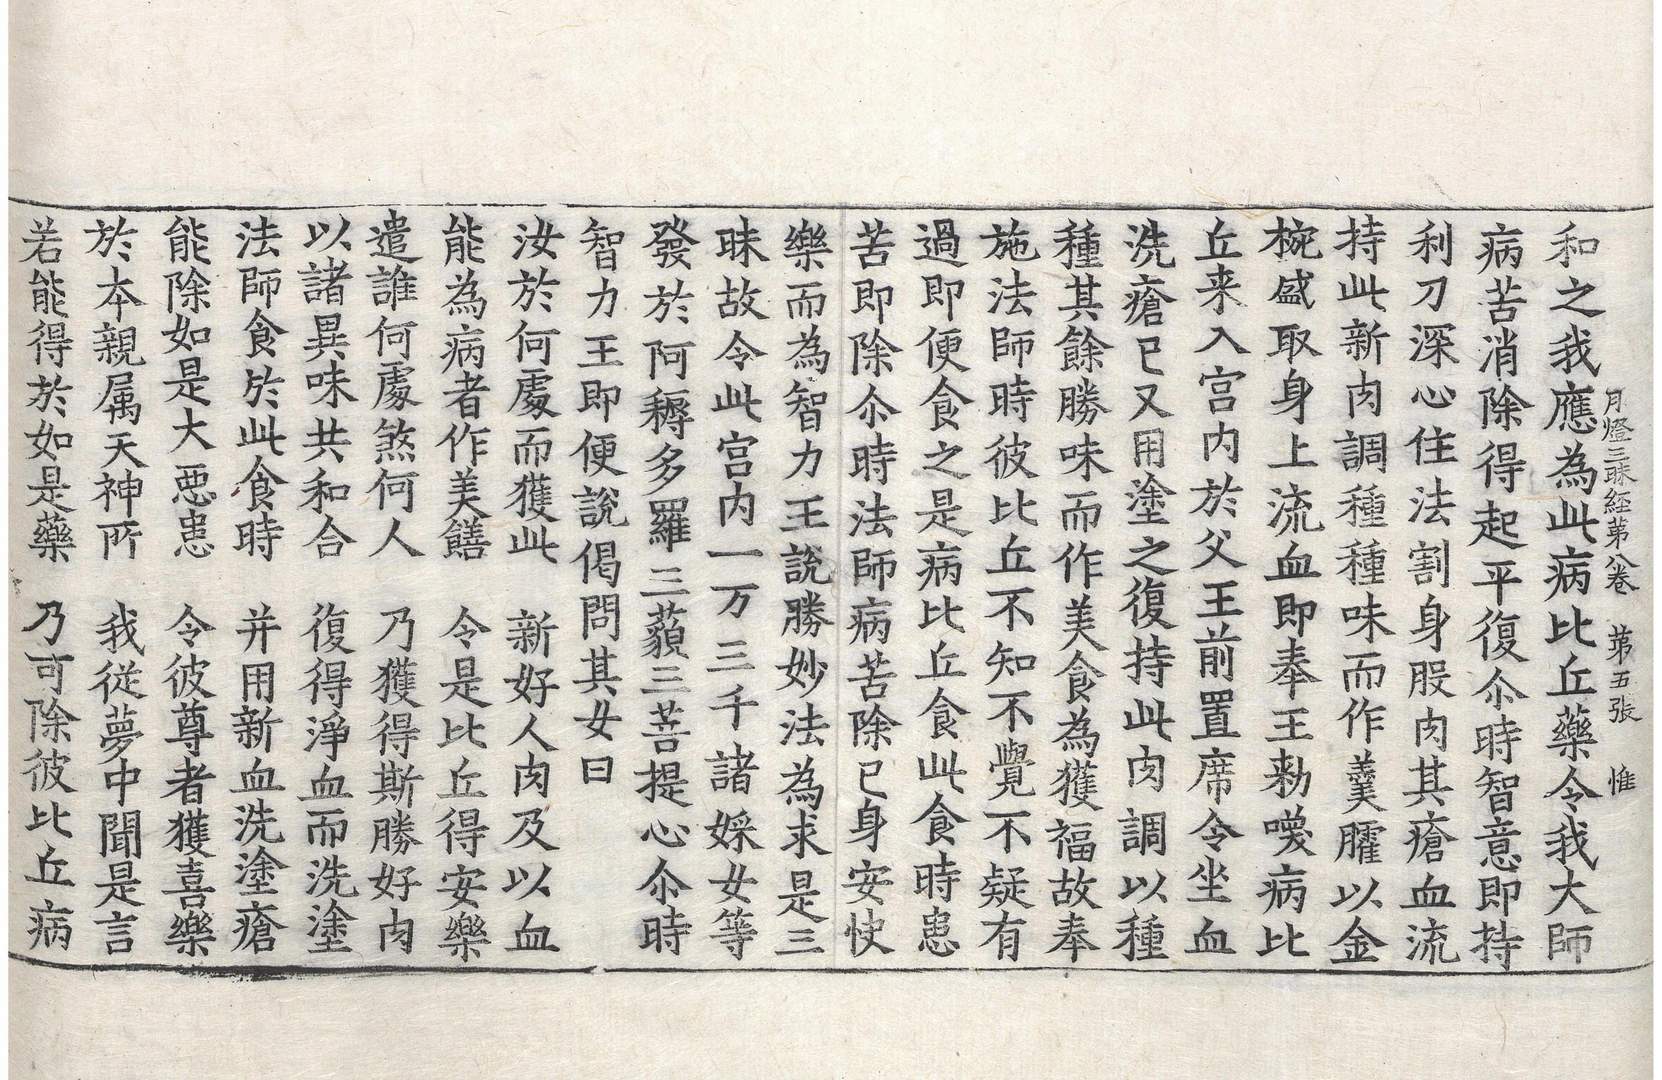 月燈三昧經第八卷 第五張 惟
和之我應為此病比丘藥令我大師
病苦消除得起平復尒時智意即持
利刀深心住法割身股肉其瘡血流
持此新肉調種種味而作羹臛以金
椀盛取身上流血即奉王勑喚病比
丘来入宫内於父王前置席令坐血
洗瘡已又用塗之復持此肉調以種
種其餘勝味而作美食為獲福故奉
施法師時彼比丘不知不覺不疑有
過即便食之是病比丘食此食時患
苦即除尒時法師病苦除已身安快
樂而為智力王說勝妙法為求是三
昧故令此宫内一万三千諸婇女等
發於阿耨多羅三藐三菩提心尒時
智力王即便說偈問其女曰
汝於何處而獲此 新好人肉及以血
能為病者作美饍 令是比丘得安樂
遣誰何處煞何人 乃獲得斯勝好肉
以諸異味共和合 復得淨血而洗塗
法師食於此食時 并用新血洗塗瘡
能除如是大惡患 令彼尊者獲喜樂
於本親属天神所 我從夢中聞是言
若能得於如是藥 乃可除彼比丘病